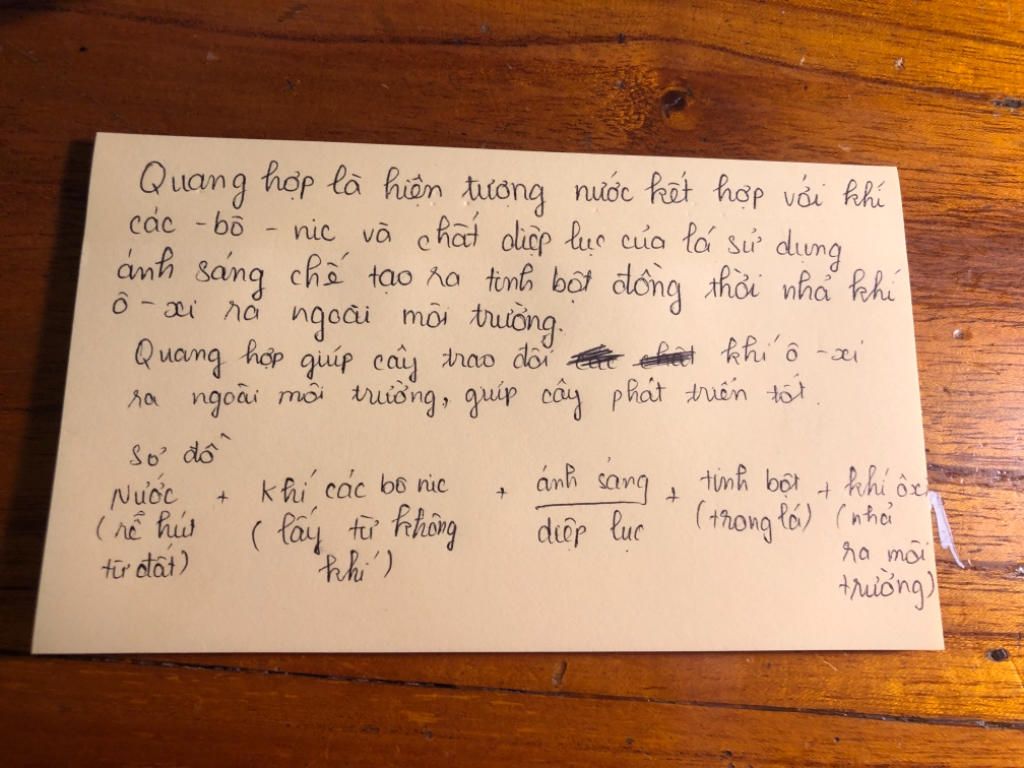 Quang hợp là hiện tượng nước kết hợp với khí
các - bô - nic và chất diệp lục của lá sử dụng
ánh sáng chế tạo ra tinh bột đồng thời nhả khí
ô - xi ra ngoài môi trường.
Quang hợp giúp cây trao đổi khí ô - xi
ra ngoài môi trường, giúp cây phát triển tốt.
Sơ đồ
Nước + Khí các bô nic + ánh sáng + tinh bột + khí ôx
(rễ hút (lấy từ không diệp lục (trong lá) (nhả
từ đất) khí) ra môi
trường)